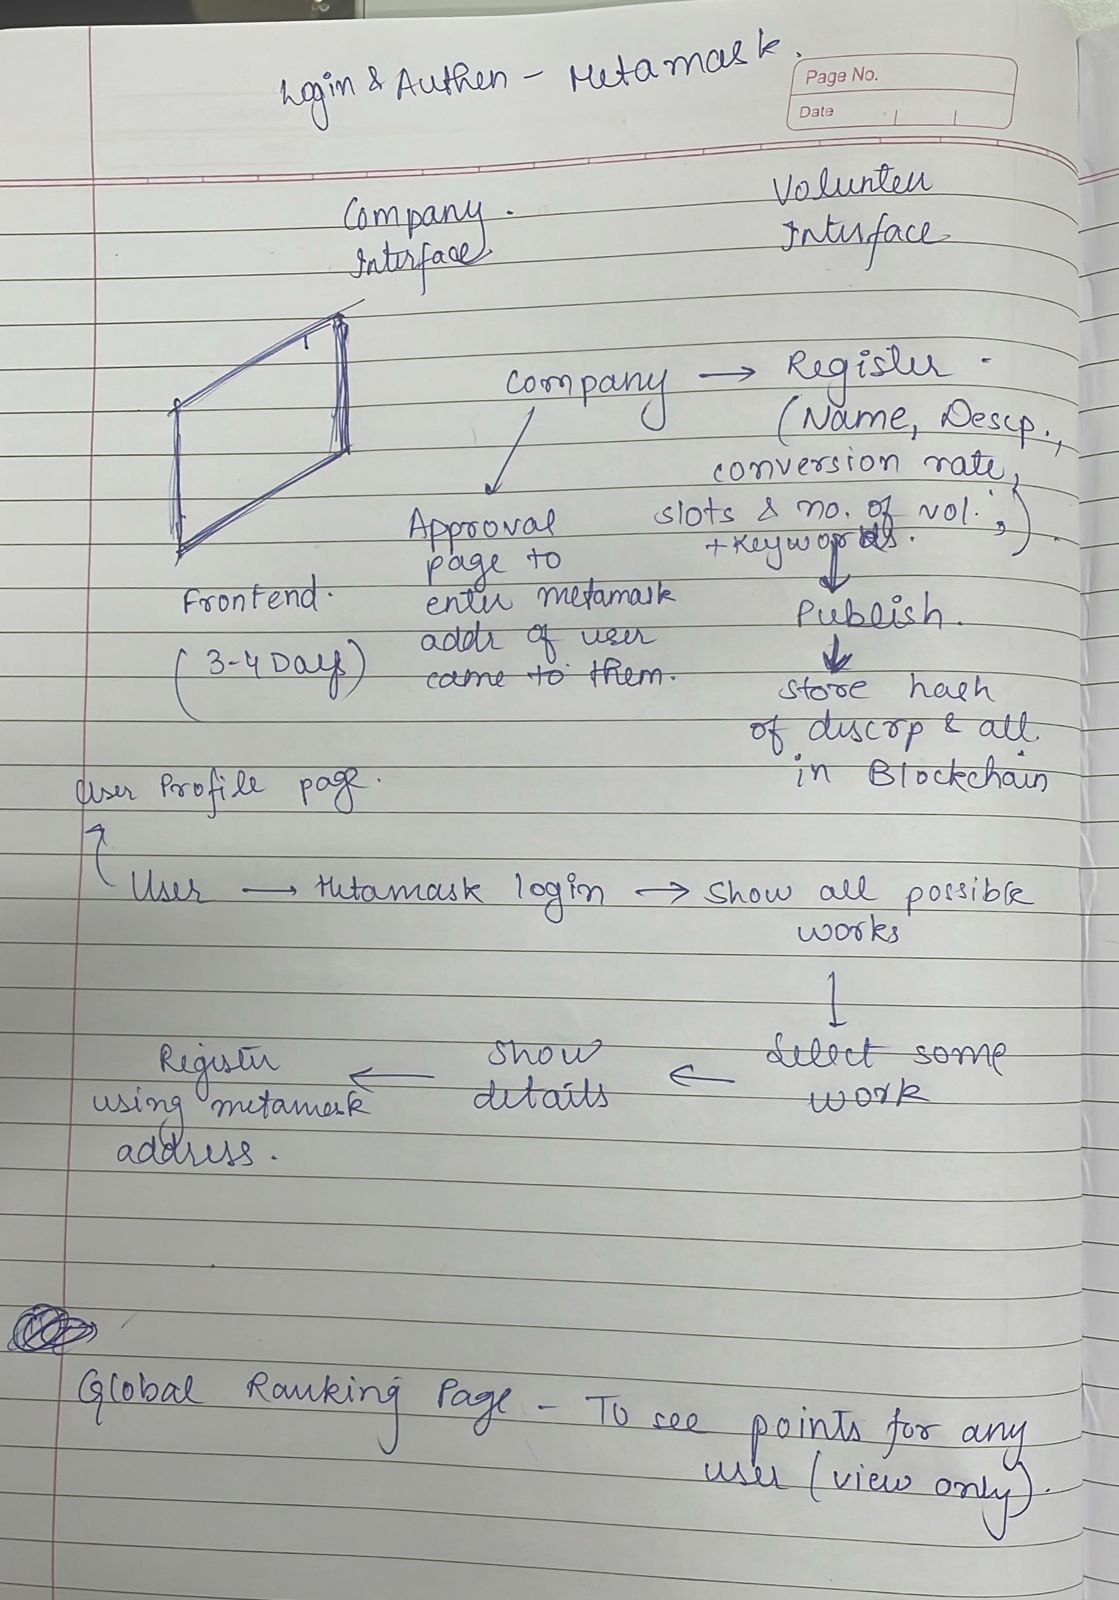 Login & Authen - Metamask.
Page No.
Date
Company.
Interface.
Volunteer
Interface.
Company → Register -
(Name, Descp.,
conversion rate,
slots & no. of vol.,
+ Keywords.)
Publish.
store hash
of discrp & all
in Blockchain
Approval
page to
enter metamask
addr of user
came to them.
Frontend.
(3-4 Days)
User Profile page.
User → Metamask login → Show all possible
works
Select some
work
Show
details
Register
using metamask
address.
Global Ranking Page - To see points for any
user (view only).